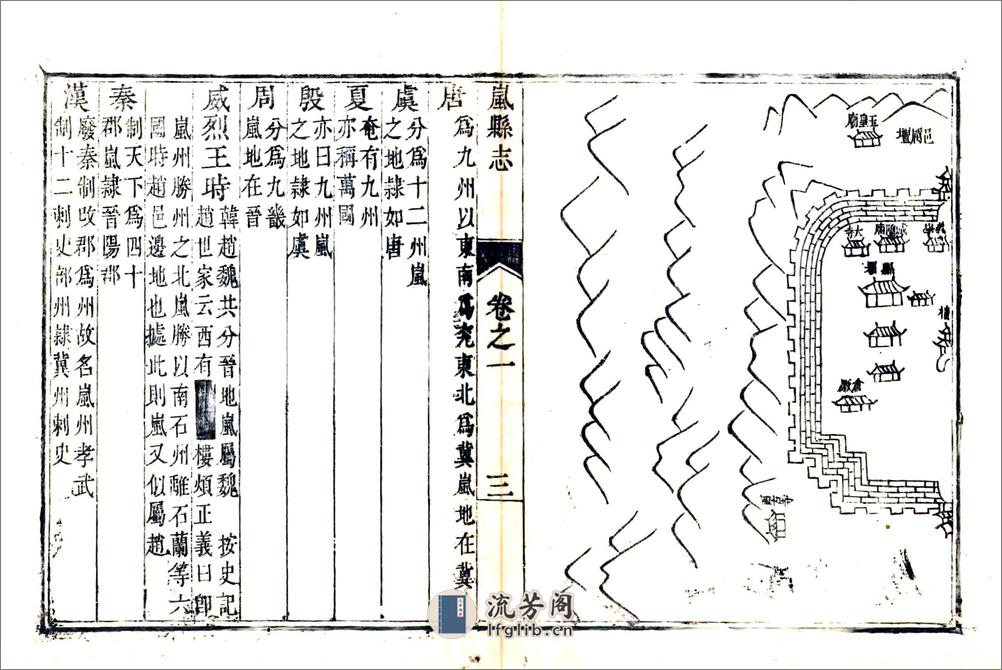 玉皇廟
邑厲壇
大寺
縣
倉廒
嵐縣志
卷之一
三
唐
為九州以東南爲兖東北爲冀嵐地在冀
虞
分爲十二州嵐
之地隸如唐
夏
奄有九州
亦稱萬國
殷
亦曰九州嵐
之地隸如虞
周
分爲九畿
嵐地在晉
威烈王時
韓趙魏共分晉地嵐屬魏 按史記
趙世家云西有 樓煩正義曰卽
嵐州勝州之北嵐勝以南石州離石蘭等六
國時趙邑邊地也據此則嵐又似屬趙
秦
制天下爲四十
郡嵐隸晉陽郡
漢
廢秦制改郡爲州故名嵐州孝武
制十二刺史部州隸冀州刺史
流芳阁
lfglib.cn